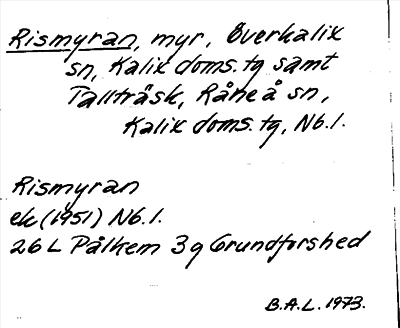 Rismyran, myr, Överkalix
sn, Kalix doms. tg samt
Tallträsk, Råneå sn,
Kalix doms. tg, Nb.l.
Rismyran
ek (1951) Nb.l.
26 L Pålkem 3g Grundforshed
B.A.L. 1973.